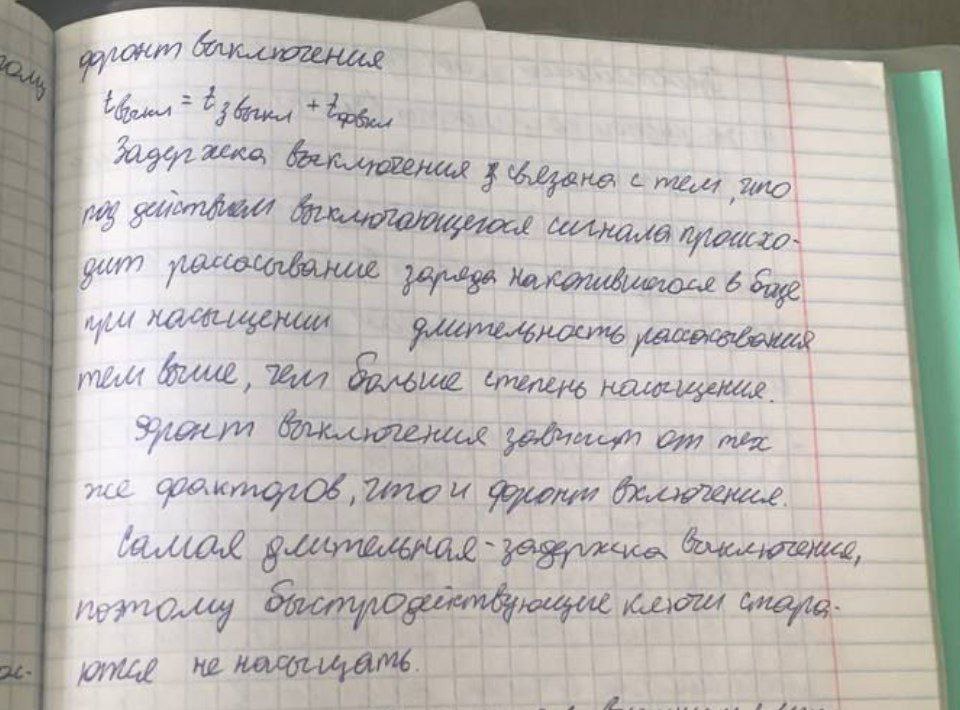 фронт выключения
tвыкл = tз выкл + tфвкл
Задержка выключения связана с тем, что
под действием выключающегося сигнала происхо-
дит рассасывание заряда накопившегося в базе
при насыщении длительность рассасывания
тем выше, чем больше степень насыщения.
Фронт выключения зависит от тех
же факторов, что и фронт включения.
Самая длительная - задержка выключения,
поэтому быстродействующие ключи стара-
ются не насыщать.